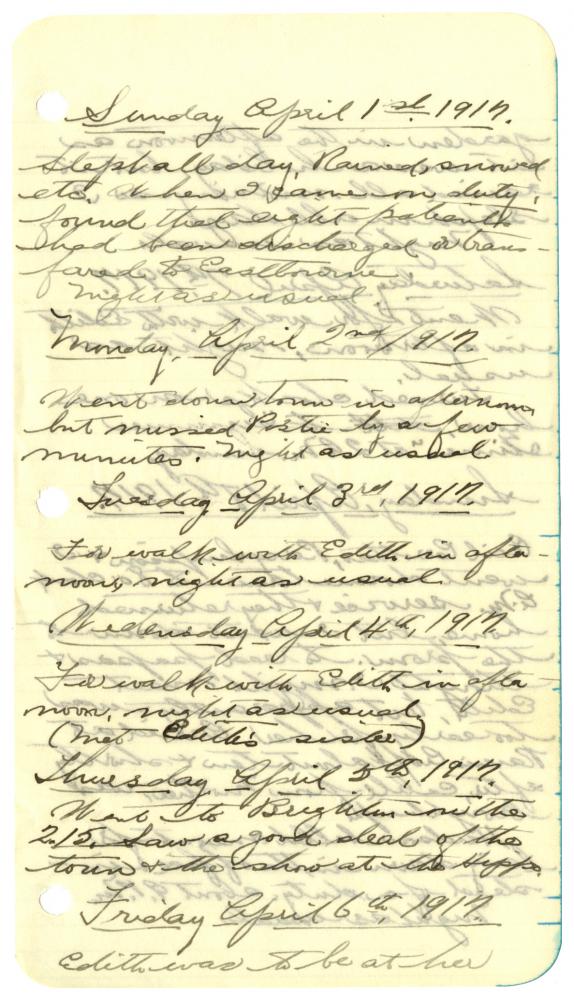 Sunday April 1st 1917.
Slept all day, Rained, snowed
etc. When I came on duty,
found that eight patients
had been discharged or trans-
fared to Eastbourne.
Night as usual.
Monday, April 2nd 1917.
Went down town in afternoon,
but missed Postie by a few
minutes. Night as usual
Tuesday April 3rd, 1917.
For walk with Edith in after-
noon, night as usual
Wednesday April 4th, 1917
For walk with Edith in after-
noon, night as usual,
(Met Edith's sister)
Thursday April 5th, 1917.
Went to Brighton on the
2.15. Saw a good deal of the
town & the show at the Hipp.
Friday April 6th, 1917.
Edith was to be at her